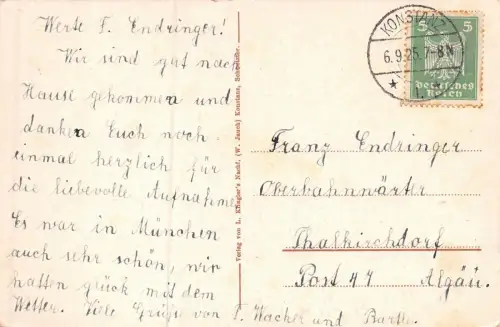 Werte F. Endringer!
Wir sind gut nach
Hause gekommen und
danken Euch noch
einmal herzlich für
die liebevolle Aufnahme
Es war in München
auch sehr schön, wir
hatten glück mit dem
Wetter. Viele Grüße von F. Wacker und
Verlag von L. Nachf. (W. Jauch) Konstanz,
KONSTANZ
6.9.25.7-8N
5 5
Deutsches
Reich
Franz Endringer
Oberbahnwärter
Thalkirchdorf
Post 47 Algäu.